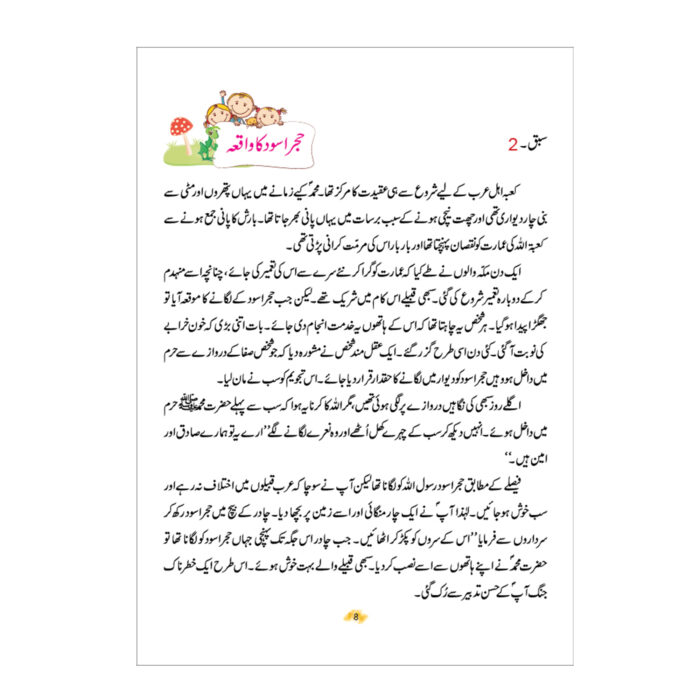 سبق ۔ 2
حجر اسود کا واقعہ
کعبہ اہل عرب کے لیے شروع سے ہی عقیدت کا مرکز تھا۔ محمدؐ کے زمانے میں یہاں پتھروں اور مٹی سے
بنی چار دیواری تھی اور چھت نیچی ہونے کے سبب برسات میں یہاں پانی بھر جاتا تھا۔ بارش کا پانی جمع ہونے سے
کعبۃ اللہ کی عمارت کو نقصان پہنچتا تھا اور بار بار اس کی مرمّت کرانی پڑتی تھی۔
ایک دن مکہّ والوں نے طے کیا کہ عمارت کو گرا کر نئے سرے سے اس کی تعمیر کی جائے، چنانچہ اسے منہدم
کر کے دوبارہ تعمیر شروع کی گئی۔ سبھی قبیلے اس کام میں شریک تھے۔ لیکن جب حجر اسود کے لگانے کا موقعہ آیا تو
جھگڑا پیدا ہو گیا۔ ہر شخص یہ چاہتا تھا کہ اس کے ہاتھوں یہ خدمت انجام دی جائے۔ بات اتنی بڑی کہ خون خرابے
کی نوبت آ گئی۔ کئی دن اسی طرح گزر گئے۔ ایک عقل مند شخص نے مشورہ دیا کہ جو شخص صفا کے دروازے سے حرم
میں داخل ہو وہیں حجر اسود کو دیوار میں لگانے کا حقدار قرار دیا جائے۔ اس تجویم کو سب نے مان لیا۔
اگلے روز سبھی کی نگاہیں دروازے پر لگی ہوئی تھیں، مگر اللہ کا کرنا یہ ہوا کہ سب سے پہلے حضرت محمد ﷺ حرم
میں داخل ہوئے۔ انہیں دیکھ کر سب کے چہرے کھل اُٹھے اور وہ نعرے لگانے لگے ”ارے یہ تو ہمارے صادق اور
امین ہیں۔“
فیصلے کے مطابق حجر اسود رسول اللہ کو لگانا تھا لیکن آپ نے سوچا کہ عرب قبیلوں میں اختلاف نہ رہے اور
سب خوش ہو جائیں۔ لہٰذا آپؐ نے ایک چار منگائی اور اسے زمین پر بچھا دیا۔ چادر کے بیچ میں حجر اسود رکھ کر
سرداروں سے فرمایا ”اس کے سروں کو پکڑ کر اٹھائیں۔ جب چادر اس جگہ تک پہنچی جہاں حجر اسود کو لگانا تھا تو
حضرت محمدؐ نے اپنے ہاتھوں سے اسے نصب کر دیا۔ سبھی قبیلے والے بہت خوش ہوئے۔ اس طرح ایک خطرناک
جنگ آپؐ کے حسن تدبیر سے رُک گئی۔
8